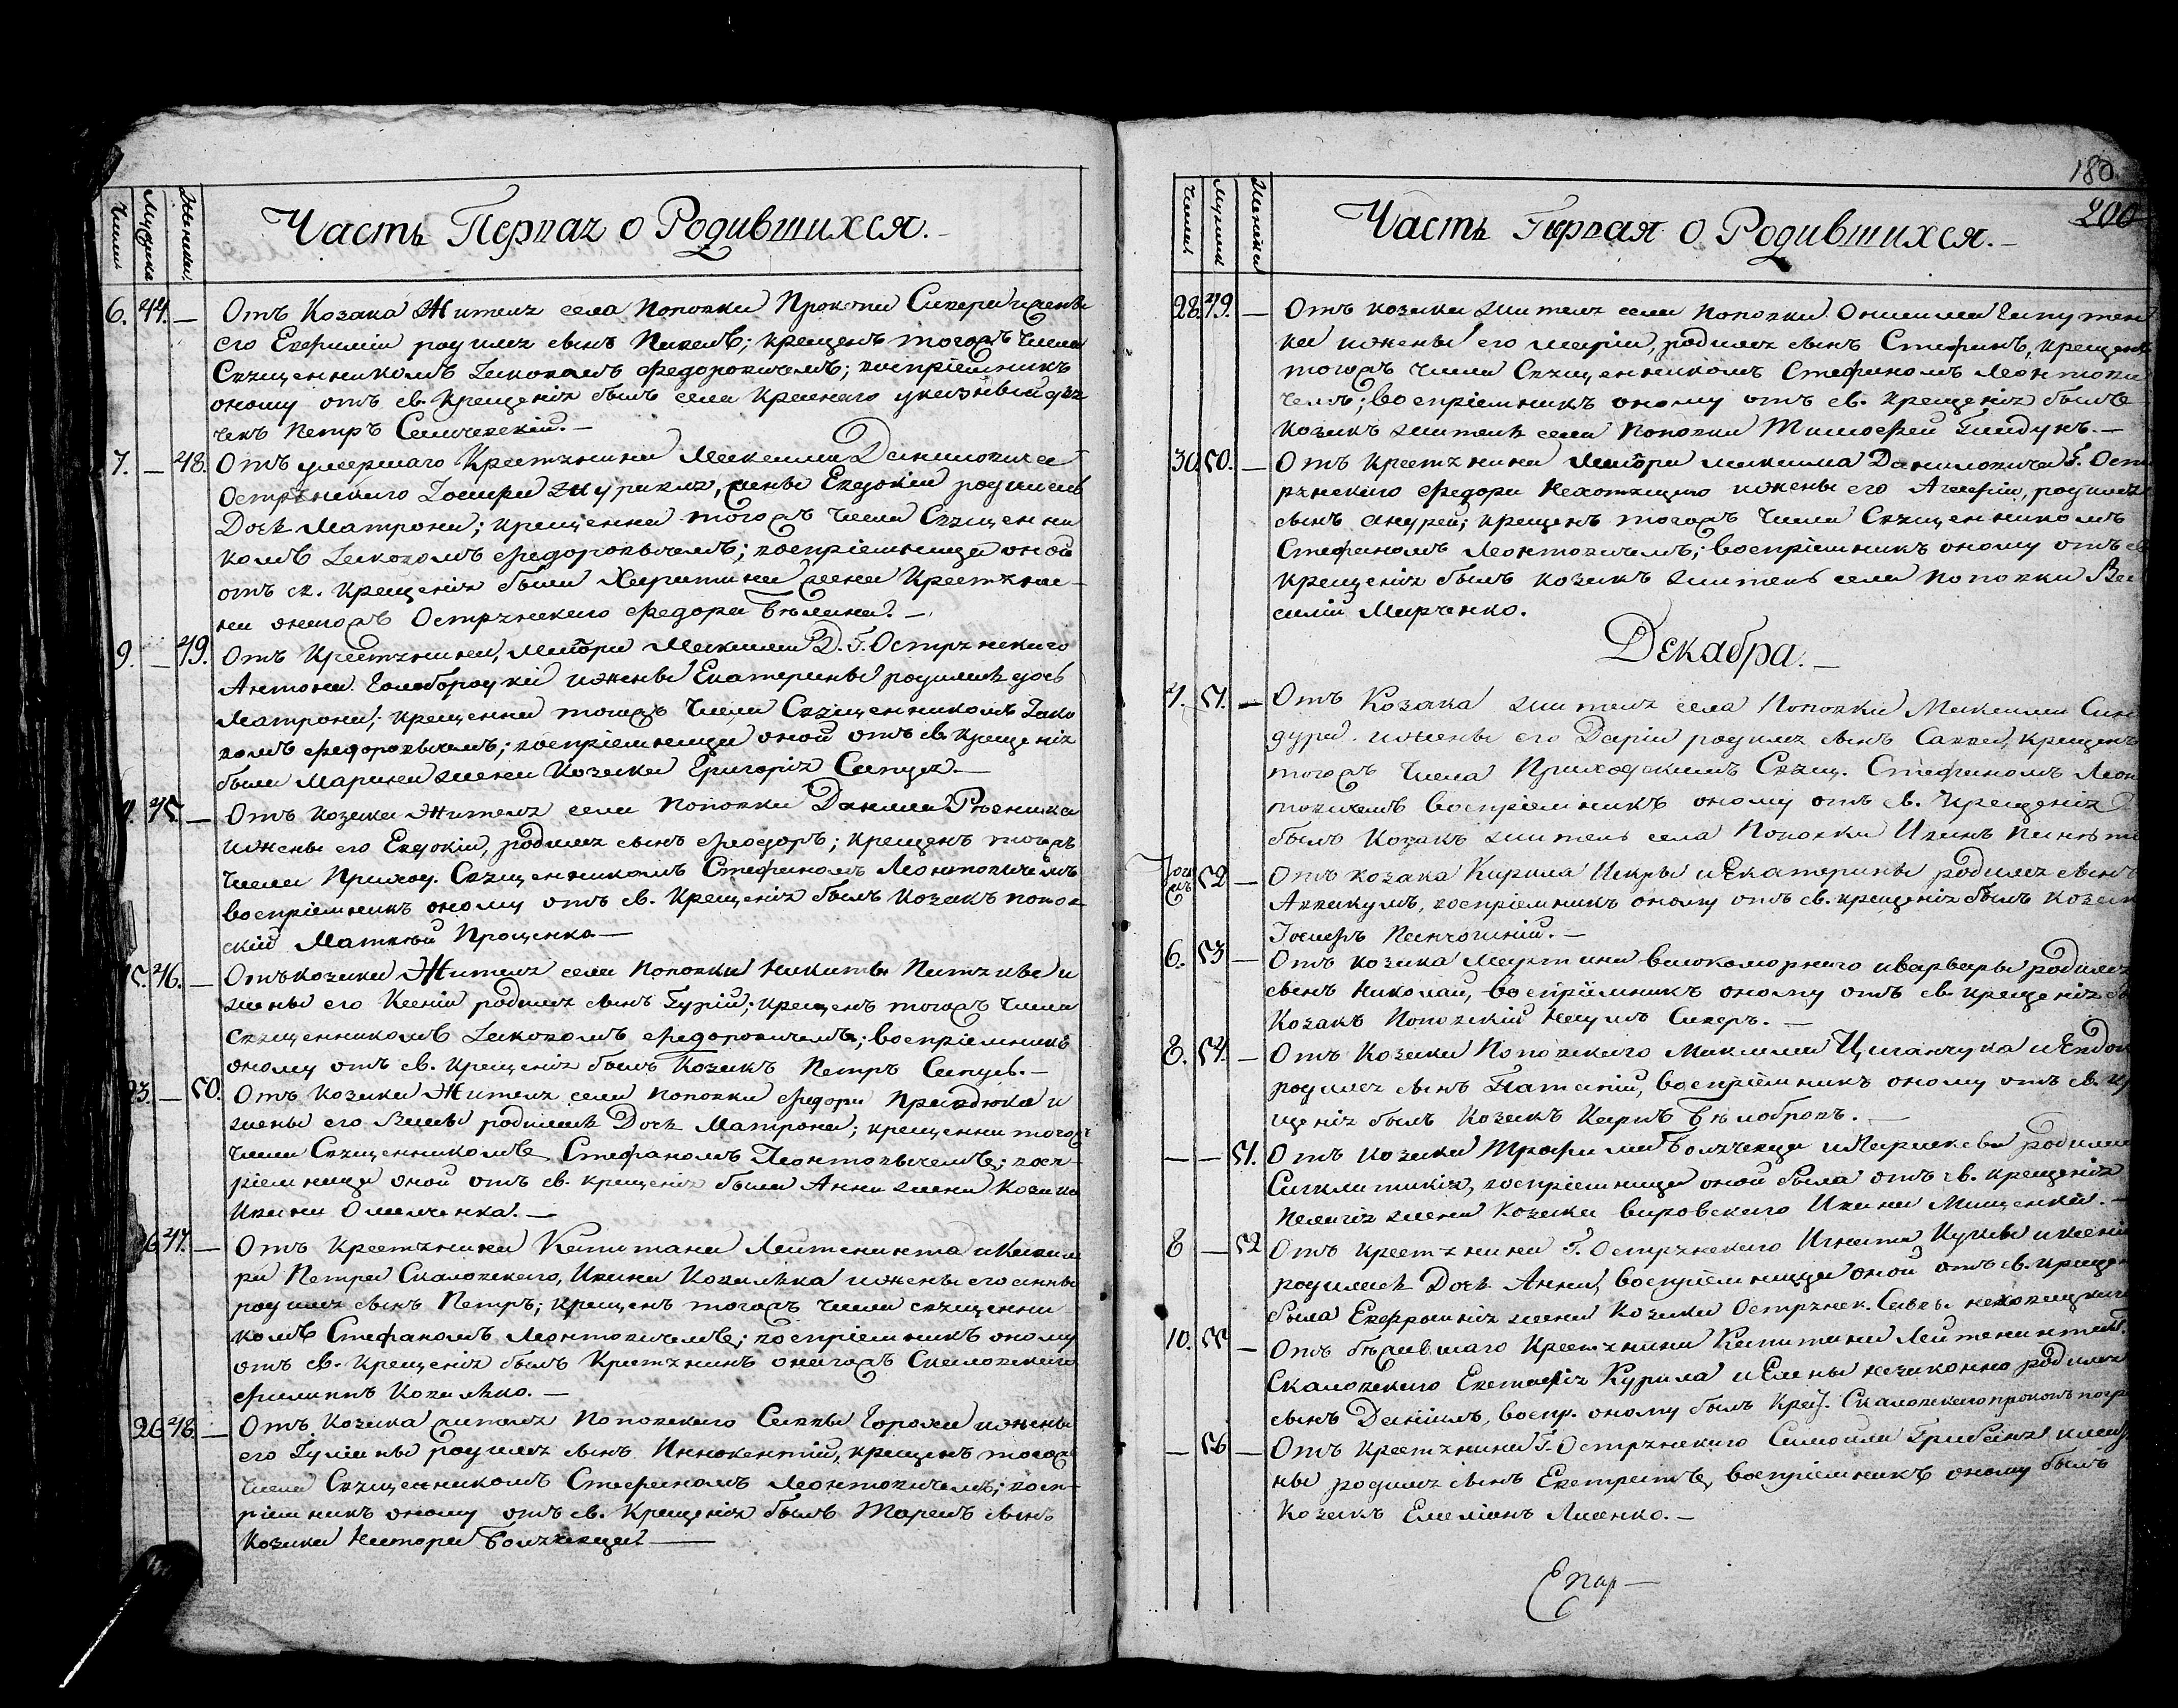 Числа
Мужеска
Женска.
Часть Первая о Родившихся.
6. 44. — Отъ Козака Жителя села Поповки Прокопа Сивера и жены
его Евфиміи родился сынъ Павелъ; крещенъ тогожъ числа
Священникомъ Іаковомъ Федоровичемъ; воспріемникъ
оному отъ св. крещенія былъ села Краснаго указный дья
чекъ Петръ Самчевскій. —
7. — 48. Отъ умершаго Крестянина Максима Даниловича
Острянского Іосифа Журавля, жены Евдокіи родилась
Дочь Матрона; крещенна тогожъ числа Священни
комъ Іаковомъ Федоровичемъ; воспріемница оной
отъ св. крещенія была Харитина жена Крестяни-
на оногожъ Острянского Федора Бѣлина. —
9. — 49. Отъ Крестянина, Маіора Максима Д. Г. Острянскаго
Антона Голобородки и жены Екатерины родилась дочь
Матрона; крещенна тогожъ числа Священникомъ Іако
вомъ Федоровичемъ; воспріемница оной отъ св. крещенія
была Марина жена Козака Григорія Сапуна. —
45. — Отъ козака Жителя села Поповки Данила Рѣзника
и жены его Евдокіи, родился сынъ Феодоръ; крещенъ тогожъ
числа Приход. Священникомъ Стефаномъ Леонтовичемъ
воспріемникъ оному отъ св. Крещенія былъ Козакъ попов-
скій Матвей Проценко —
46. — Отъ козака Жителя села Поповки Никиты и
жены его Ксеніи родился сынъ Гурій; крещенъ тогожъ числа
священникомъ Іаковомъ Федоровичемъ; воспріемникъ
оному отъ св. крещенія былъ Козакъ Петръ Сапунъ. —
23. — 50. Отъ Козака Жителя села Поповки Федора Правдюка и
жены его родилась Дочь Матрона; крещенна тогожъ
числа Священникомъ Стефаномъ Леонтовичемъ; восп-
ріемница оной отъ св. крещенія была Анна жена Козака
Ивана Омельченка. —
47. — Отъ Крестянина Капитана Лейтенанта и Кавале
ра Петра Скаловского, Ивана Ковалька и жены его Анны
родился сынъ Петръ; крещенъ тогожъ числа священни
комъ Стефаномъ Леонтовичемъ; воспріемникъ оному
отъ св. крещенія былъ Крестянинъ оногожъ Скаловского
Филиппъ Ковалько. —
26 48. — Отъ Козака жителя Поповского Саввы и жены
его Іуліаны родился сынъ Иннокентій, крещенъ тогожъ
числа Священникомъ Стефаномъ Леонтовичемъ; восп-
ріемникъ оному отъ св. Крещенія былъ сынъ
Козака —
180.
200
Числа
Мужска
Женска
Часть Первая о Родившихся. —
28. 49. — Отъ козака жителя села Поповки
ка и жены его Маріи, родился сынъ Стефанъ, крещенъ
тогожъ числа Священникомъ Стефаномъ Леонтови
чемъ; воспріемникъ оному отъ св. крещенія былъ
козакъ житель села Поповки Тимофей —
30. 50. — Отъ Крестянина Маіора Максима Даниловича Г. Остр
рянского Федора Нехотящего и жены его Агафіи, родился
сынъ Андрей; крещенъ тогожъ числа Священникомъ
Стефаномъ Леонтовичемъ; воспріемникъ оному отъ св
крещенія былъ козакъ житель села Поповки Ва
силій Марченко.
Декабра. —
4. 51. — Отъ Козака жителя села Поповки Максима
и жены его Даріи родился сынъ Савва, крещенъ
тогожъ числа Приходскимъ Свящ. Стефаномъ Леон
товичемъ воспріемникъ оному отъ св. крещенія
былъ Козакъ житель села Поповки Иванъ
52 — Отъ козака Кирила Искры и Екатерины родился сынъ
Аввакумъ, воспріемникъ оному отъ св. крещенія былъ козак
Іосифъ —
6. 53 — Отъ козака Мартина Високоморного и Варвары родился
сынъ Николай, воспріемникъ оному отъ св. крещенія
Козакъ Поповскій Наумъ Сиверъ. —
8. 54. — Отъ Козака Поповского Максима Циганчука и Евдок
родился сынъ Патапій, воспріемникъ оному отъ св. кр
щенія былъ козакъ Карпъ Бѣлобровъ. —
— — 51. Отъ козака Трофима и Параскевы родилась
Сигклитикія, воспріемница оной была отъ св. крещенія
Пелагія жена Козака Вировского Ивана Мищенка. —
8 — 52 Отъ крестянина Г. Острянского Игната и Ксеніи
родилась Дочь Анна, воспріемница оной отъ св. крещен
была Евфросинія жена Козака Острянск. Саввы
10. 55 — Отъ бѣжавшаго Крестянина Капитана Лейтенанта Г.
Скаловского Евстафія Курила и Елены незаконно родился
сынъ Даніилъ, воспр. оному былъ Крест. Скаловского
— 56 — Отъ крестянина Г. Острянского Самойла
ны родился сынъ Евстратъ, воспріемникъ оному былъ
Козакъ Емеліанъ Лисенко. —